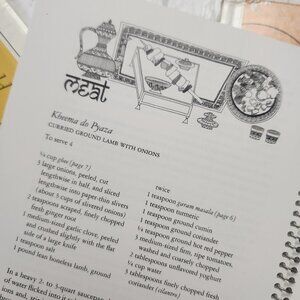 meat
Kheema do Pyaza
CURRIED GROUND LAMB WITH ONIONS
To serve 4
¼ cup ghee (page 7)
3 large onions, peeled, cut
lengthwise in half, and sliced
lengthwise into paper-thin slivers
(about 5 cups of slivered onions)
2 teaspoons scraped, finely chopped
fresh ginger root
1 medium-sized garlic clove, peeled
and crushed slightly with the flat
side of a large knife
1 teaspoon salt
1 pound lean boneless lamb, ground
twice
1 teaspoon garam masala (page 6)
1 teaspoon turmeric
1 teaspoon ground cumin
¼ teaspoon ground coriander
3 medium-sized firm, ripe tomatoes,
washed and coarsely chopped
2 tablespoons unflavored yoghurt
¼ cup water
2 tablespoons finely chopped fresh
coriander (cilantro)
In a heavy 2- to 3-quart saucepan
of water flicked into it